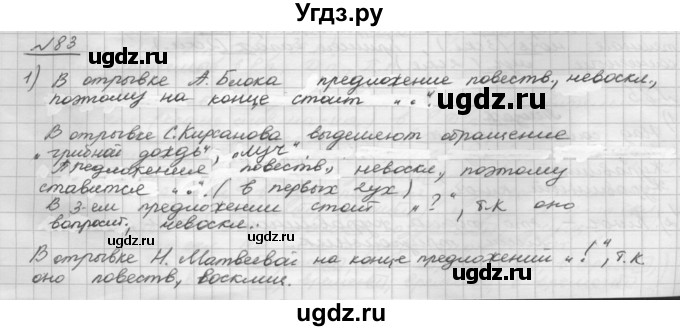 Угдз.ру
№83
1) В отрывке А. Блока предложение повеств., невоскл.,
поэтому на конце стоит „."
В отрывке С. Кирсанова выделяют обращение
„грибной дождь", „луч".
Предложения повеств., невоскл., поэтому
ставится „.". (в первых 2ух)
В 3-ем предложении стоит „?", т.к оно
вопросит., невоскл..
В отрывке Н. Матвеевой на конце предложений „!", т.к
оно повеств, восклиц.
ugdz.ru
ugdz.ru
ugdz.ru
ugdz.ru
ugdz.ru
ugdz.ru
ugdz.ru